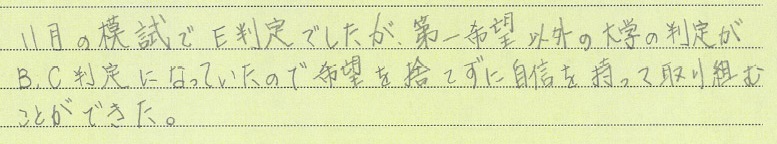 11月の模試でE判定でしたが、第一希望以外の大学の判定が
B、C判定になっていたので希望を捨てずに自信を持って取り組む
ことができた。